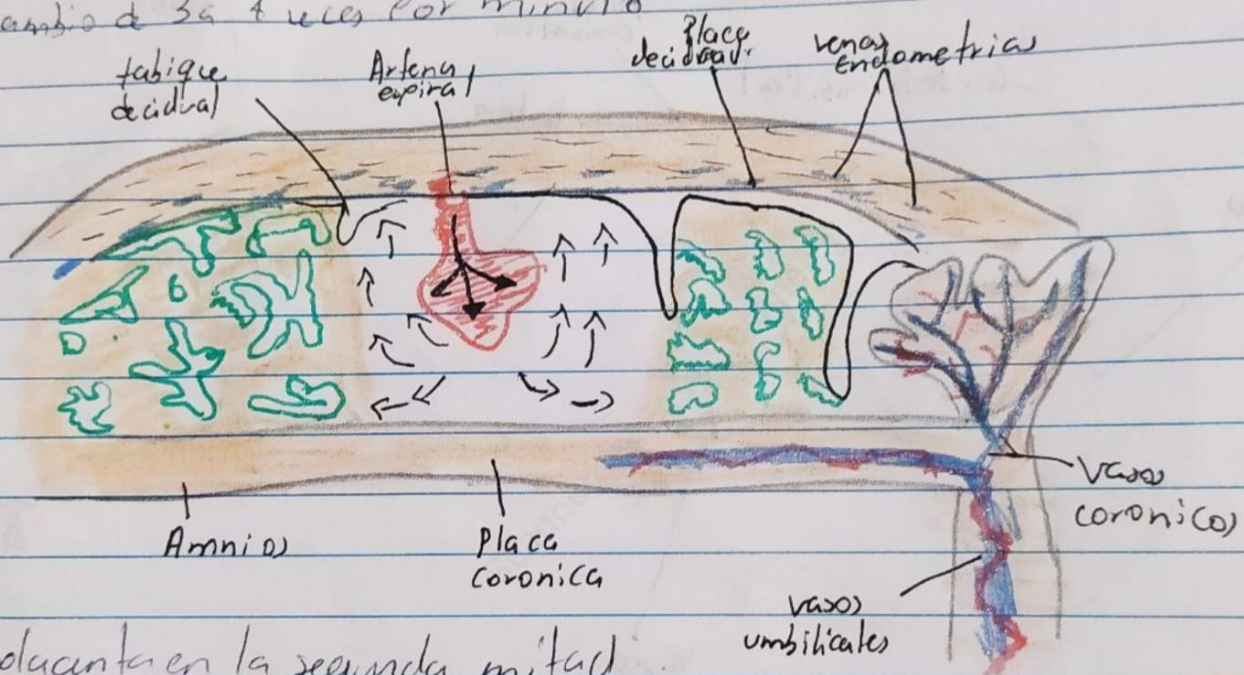 ambio de 3a 4 veces por minuto
tabique
decidual
Arteria
espiral
Placa
decidual.
venas
Endometrias
Amnios
Placa
coronica
vasos
coronicos
vasos
umbilicales
placenta en la segunda mitad